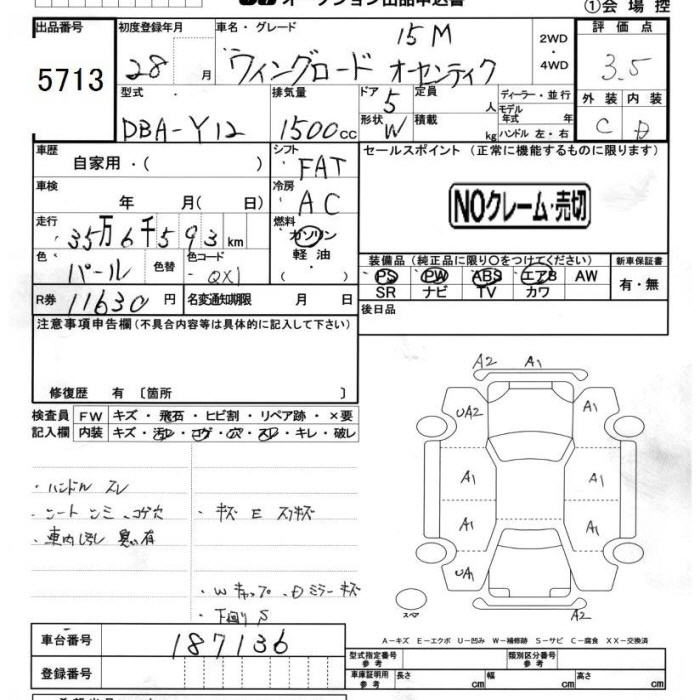 オークション出品申込書 ①会場控
出品番号 初度登録年月 車名・グレード 15M 2WD・4WD 評価点
5713 28 月 ウィングロード オーセンティク 3.5
型式 排気量 ドア 5 定員 人 ディーラー・並行 外装 内装
DBA-Y12 1500cc 形状 W 積載 kg モデル年式 年 ハンドル 左・右 C D
車歴 シフト セールスポイント (正常に機能するものに限ります)
自家用・( ) FAT
車検 冷房
年 月( 日) AC NOクレーム・売切
走行 燃料
35万6千593km ガソリン
色 色替 色コード 軽油 装備品 (純正品に限り○をつけてください。) 新車保証書
パール QX1 ・( ) PS PW ABS エアB AW 有・無
R券 11630円 名変通知期限 月 日 SR ナビ TV カワ
注意事項申告欄 (不具合内容等は具体的に記入して下さい) 後日品
修復歴 有 〔箇所 〕
検査員 FW キズ・飛石・ヒビ割・リペア跡・×要
記入欄 内装 キズ・汚レ・コゲ・穴・スレ・キレ・破レ
A2 A1
UA2 A1
A1 A1
A1 A1
UA1
A2
・ハンドル スレ
・シート シミ コゲ穴 ・キズ E スリキズ
・車内汚れ 臭い有
・Wキャップ・Dミラーキズ
・下廻りS
スペア
車台番号 187136
登録番号
A-キズ E-エクボ U-凹み W-補修跡 S-サビ C-腐食 XX-交換済
型式指定番号 参考 類別区分番号 参考
車庫証明用 参考 長さ cm 幅 cm 高さ cm